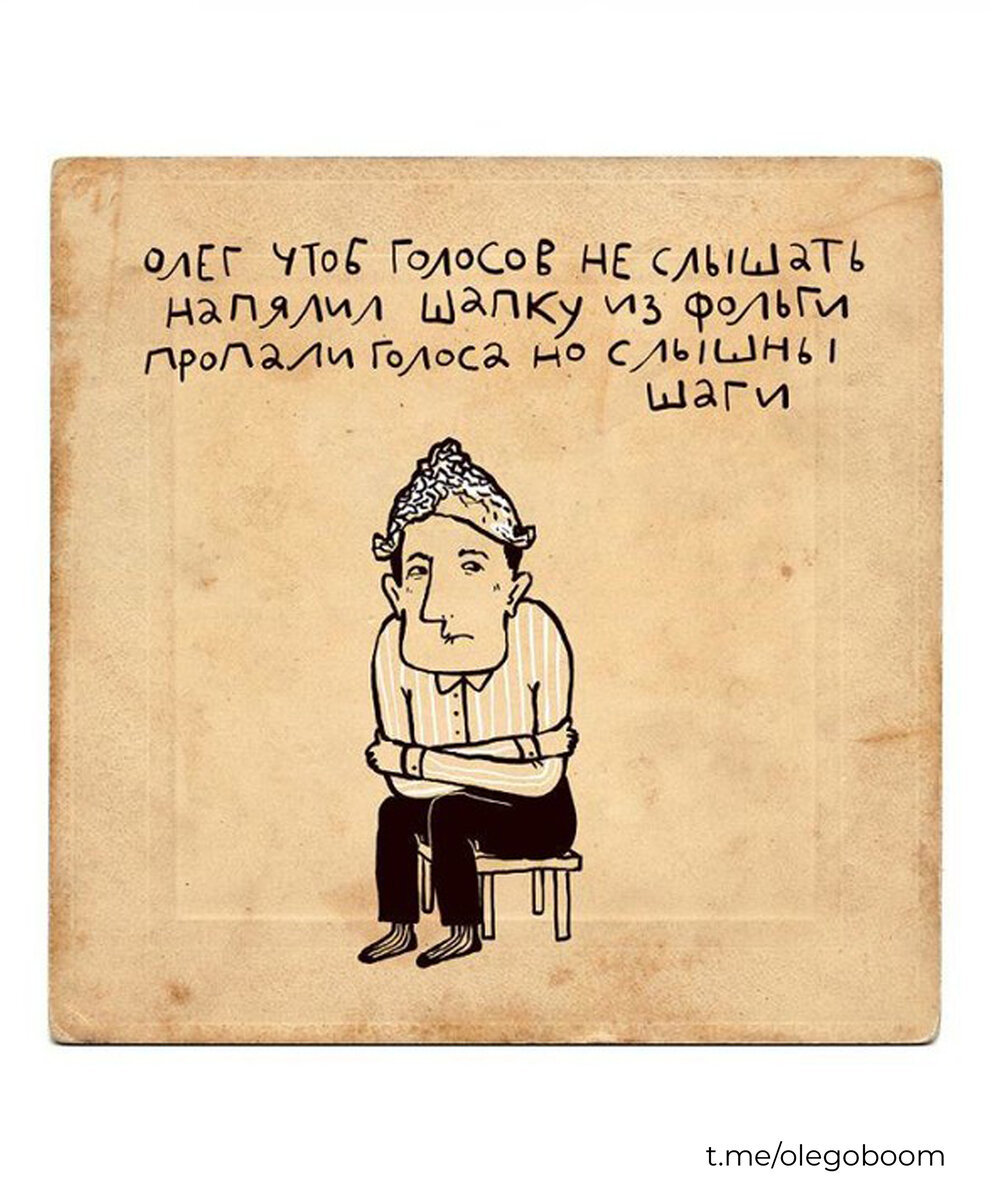 олег чтоб голосов не слышать
напялил шапку из фольги
пропали голоса но слышны
шаги
t.me/olegoboom